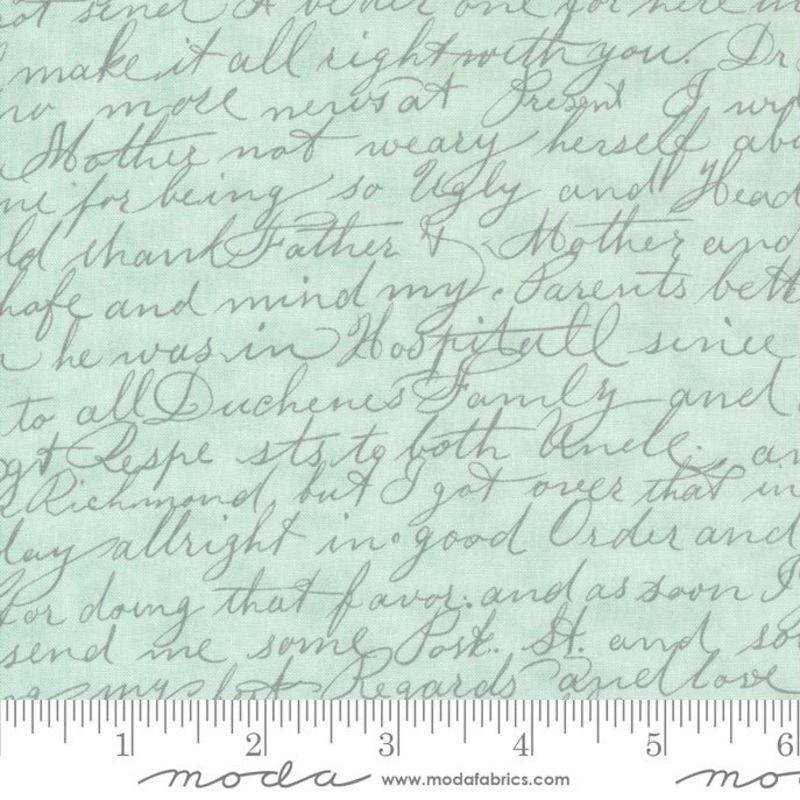 not send A better one for here in
make it all right with you. Dr
no more news at Present I wr
Mother not weary herself abo
ne for being so Ugly and Head
ld thank Father & Mother and
hope and mind my Parents bett
he was in Hospitall since
to all Duchenes Family and
Respe sts to both Uncle. an
Richmond, but I got over that in
day allright in good Order and
for doing that favor: and as soon I
send me some Post. St. and so
my best Regards and love
1 2 3 4 5 6
moda www.modafabrics.com mo